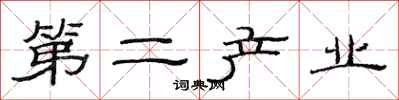 第二产业
词典网